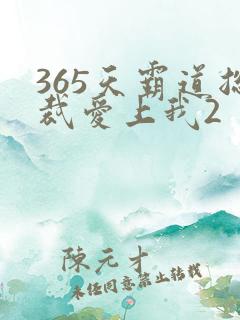 365天霸道总
裁爱上我2
陳元才
未经同意禁止转载